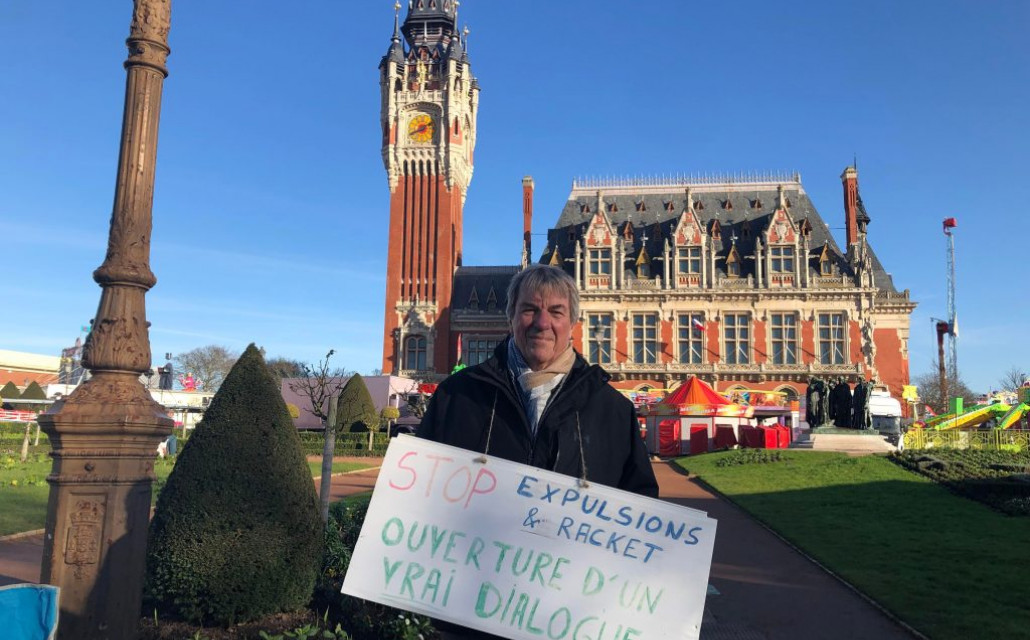 STOP EXPULSIONS
& RACKET
OUVERTURE D'UN
VRAI DIALOGUE